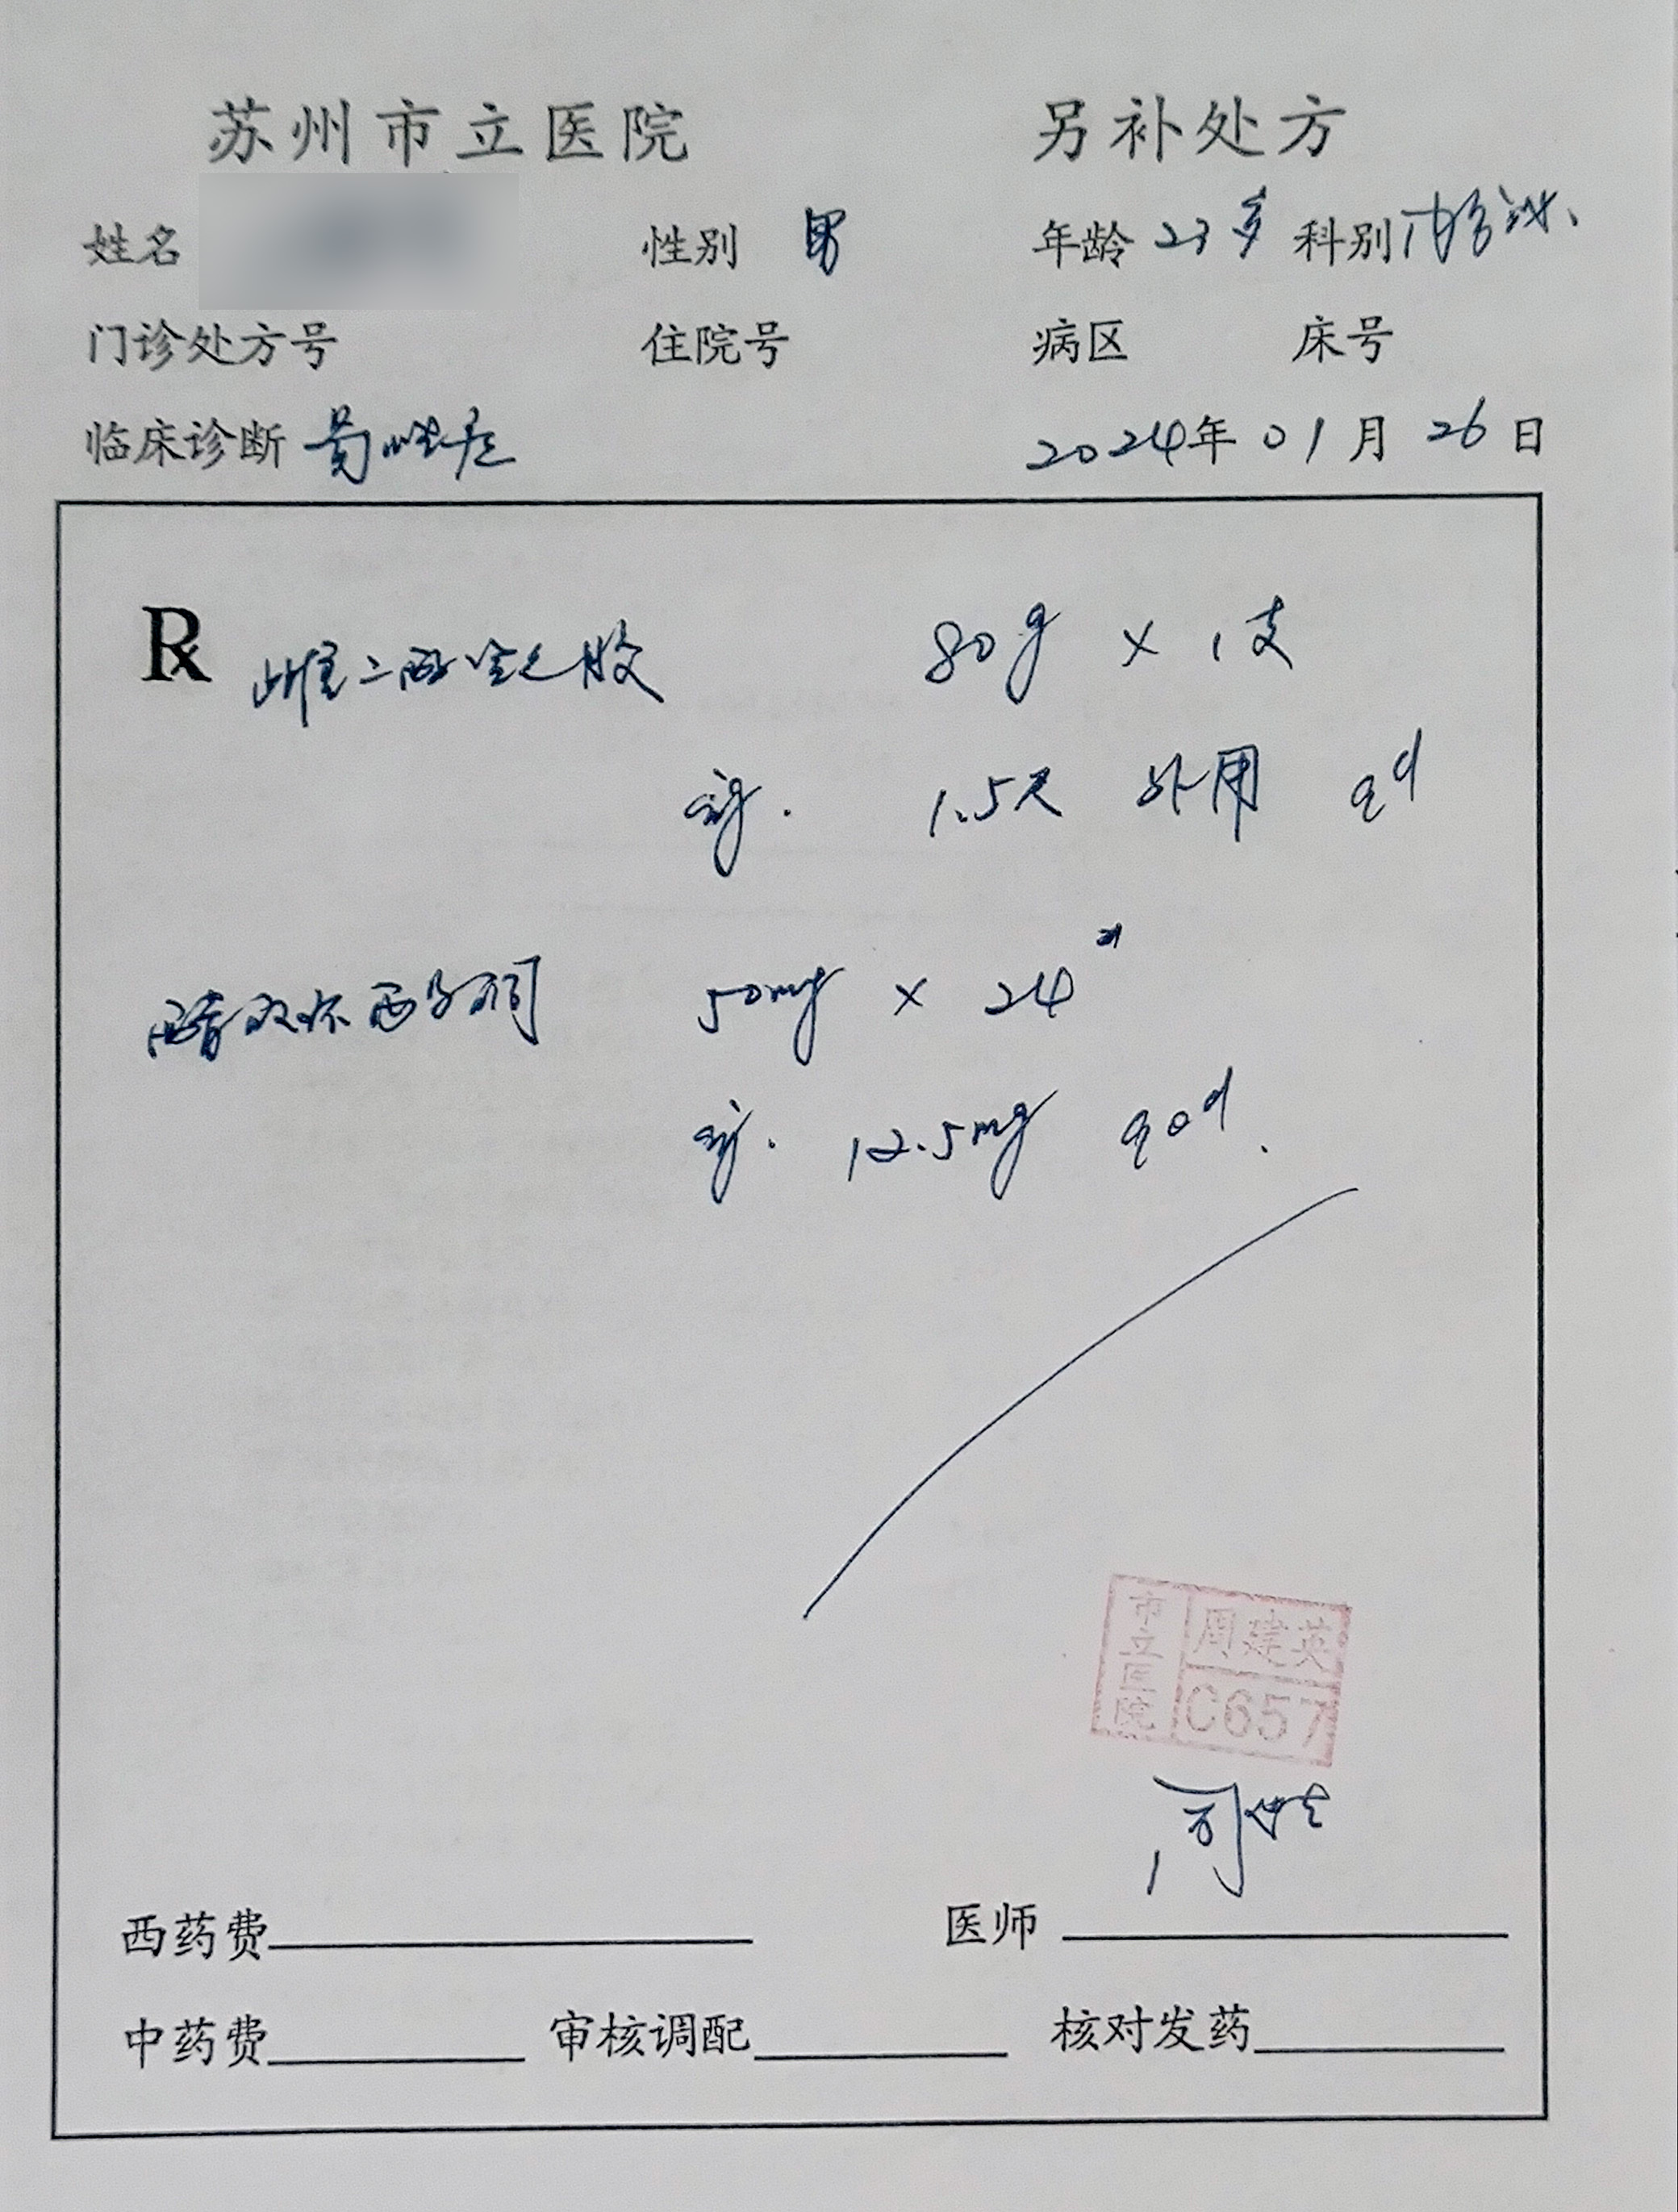 苏州市立医院 另补处方
姓名 性别 男 年龄 23岁 科别 内分泌、
门诊处方号 住院号 病区 床号
临床诊断 易性症 2024年01月26日
R 雌二醇凝胶 80g × 1支
sig. 1.5尺 外用 qd
醋酸环丙孕酮 50mg × 24片
sig. 12.5mg qod.
市立医院 周建英
C657
西药费 医师
中药费 审核调配 核对发药